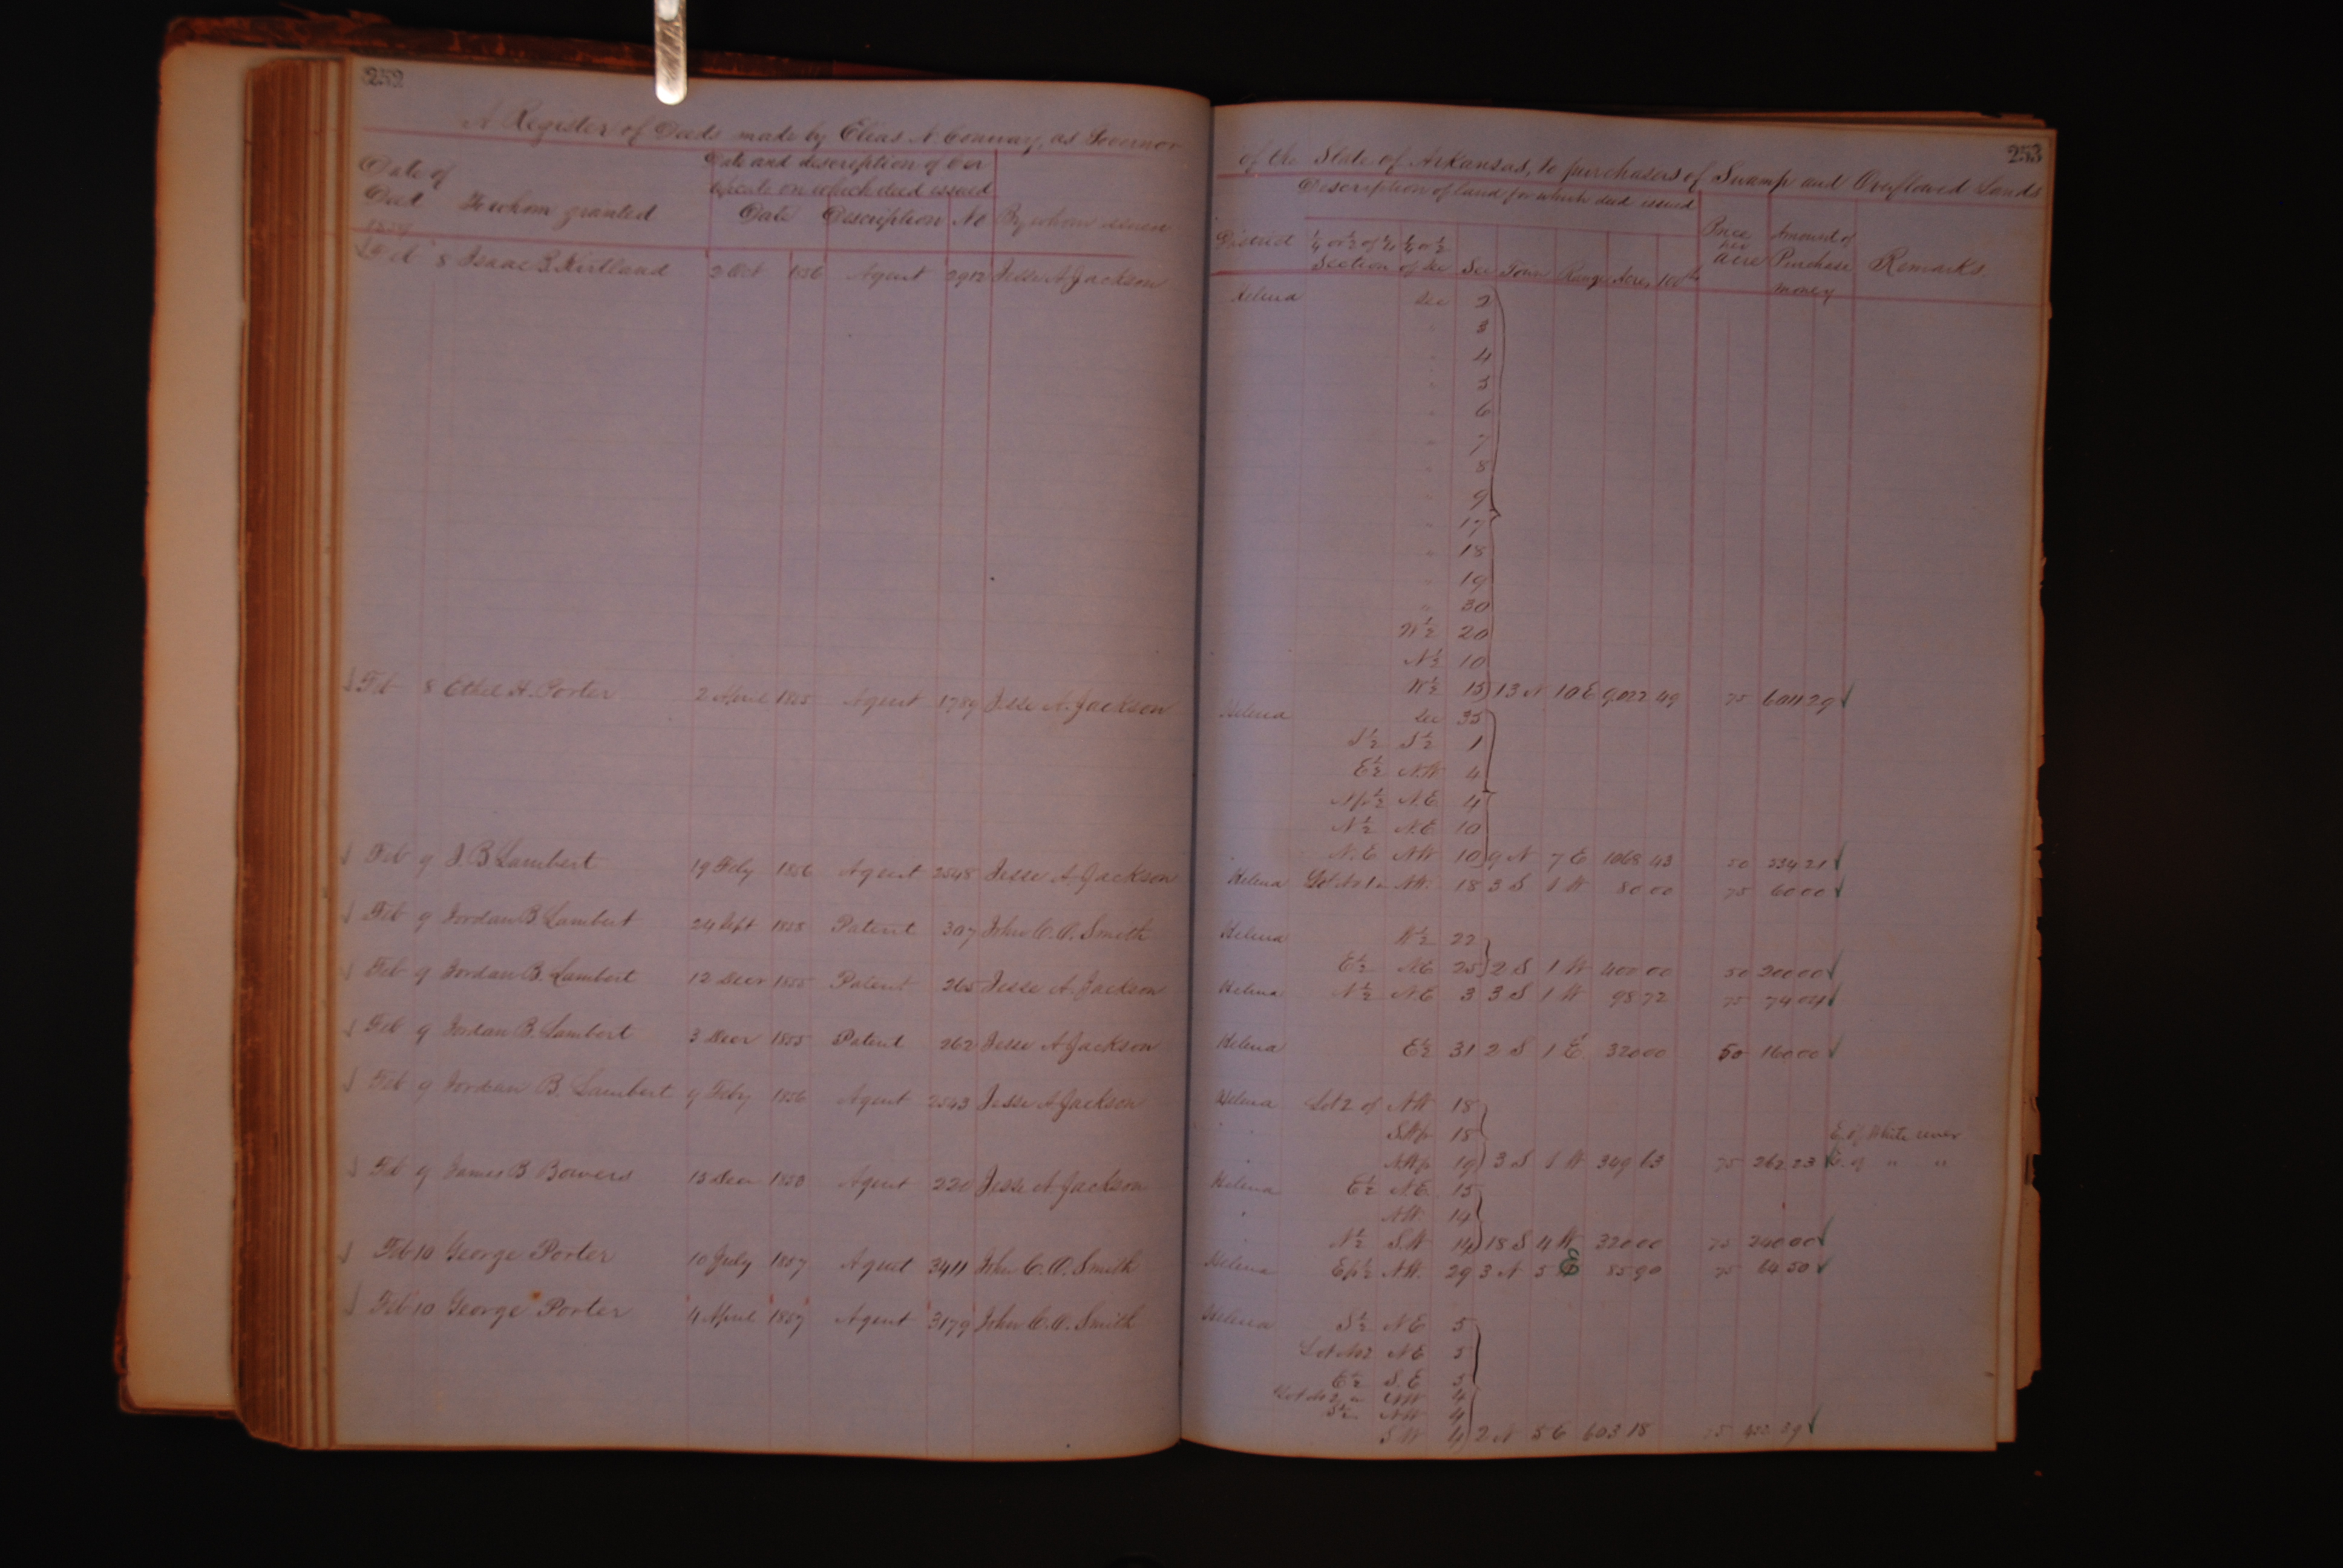 252
A Register of Deeds made by Elias N Conway, as Governor
Date of Deed
To whom granted
Date and description of Cer
tificate on which deed issued
Date Description No By whom issued
Feb 8 Isaac B. Kirtland 2 Oct 1856 Agent 2912 Jesse A Jackson
Feb 8 Ethel H. Porter 2 April 1855 Agent 1789 Jesse A. Jackson
Feb 9 J. B Lambert 19 Feby 1856 Agent 2548 Jesse A. Jackson
Feb 9 Jordan B. Lambert 24 Sept 1858 Patent 307 John C. O. Smith
Feb 9 Jordan B. Lambert 12 Decr 1855 Patent 265 Jesse A. Jackson
Feb 9 Jordan B. Lambert 3 Decr 1855 Patent 262 Jesse A Jackson
Feb 9 Jordan B. Lambert 9 Feby 1856 Agent 2543 Jesse A Jackson
Feb 9 James B Bowers 15 Decr 1853 Agent Jesse A. Jackson
Feb 10 George Porter 10 July 1857 Agent 3411 John C. O. Smith
Feb 10 George Porter 4 April 1857 Agent 3179 John C. O. Smith
253
of the State of Arkansas, to purchasers of Swamp and Overflowed Lands
Description of land for which deed issued
District ¼ or ½ of ¼ Section ¼ or ½ of Sec Sec Town Range Acres 100ths Price per acre Amount of Purchase money Remarks
Helena Sec 2
" 3
" 4
" 5
" 6
" 7
" 8
" 9
" 17
" 18
" 19
" 30
W½ 20
N½ 10
W½ 15 13 N 10 E 9022 49 75 6011 29
Helena Sec 35
S½ S½ 1
E½ N.W 4
Np½ N.E 4
N½ N.E 10
N.E NW 10 9 N 7 E 1068 43 50 534 21
Helena Lot No 1 in NW. 18 3 S 1 W 80 00 75 60 00
Helena W½ 22
E½ N.E 25 2 S 1 W 400 00 50 200 00
Helena N½ N.E 3 3 S 1 W 98 72 75 74 04
Helena E½ 31 2 S 1 E. 320 00 50 160 00
Helena Lot 2 of NW 18
SWp 18 E. of White river
NWp 19 3 S 1 W 349 63 75 262 23 E. of " "
Helena E½ N.E. 15
NW. 14
N½ S.W 14 18 S 4 W 320 00 75 240 00
Helena Ep½ NW. 29 3 N 5 E 85 90 75 64 50
Helena S½ N E 5
Lot No 2 N E 5
E½ S.E 5
Lot No 2 in NW 4
S½ NW 4
S W 4 2 N 5 E 603 18 75